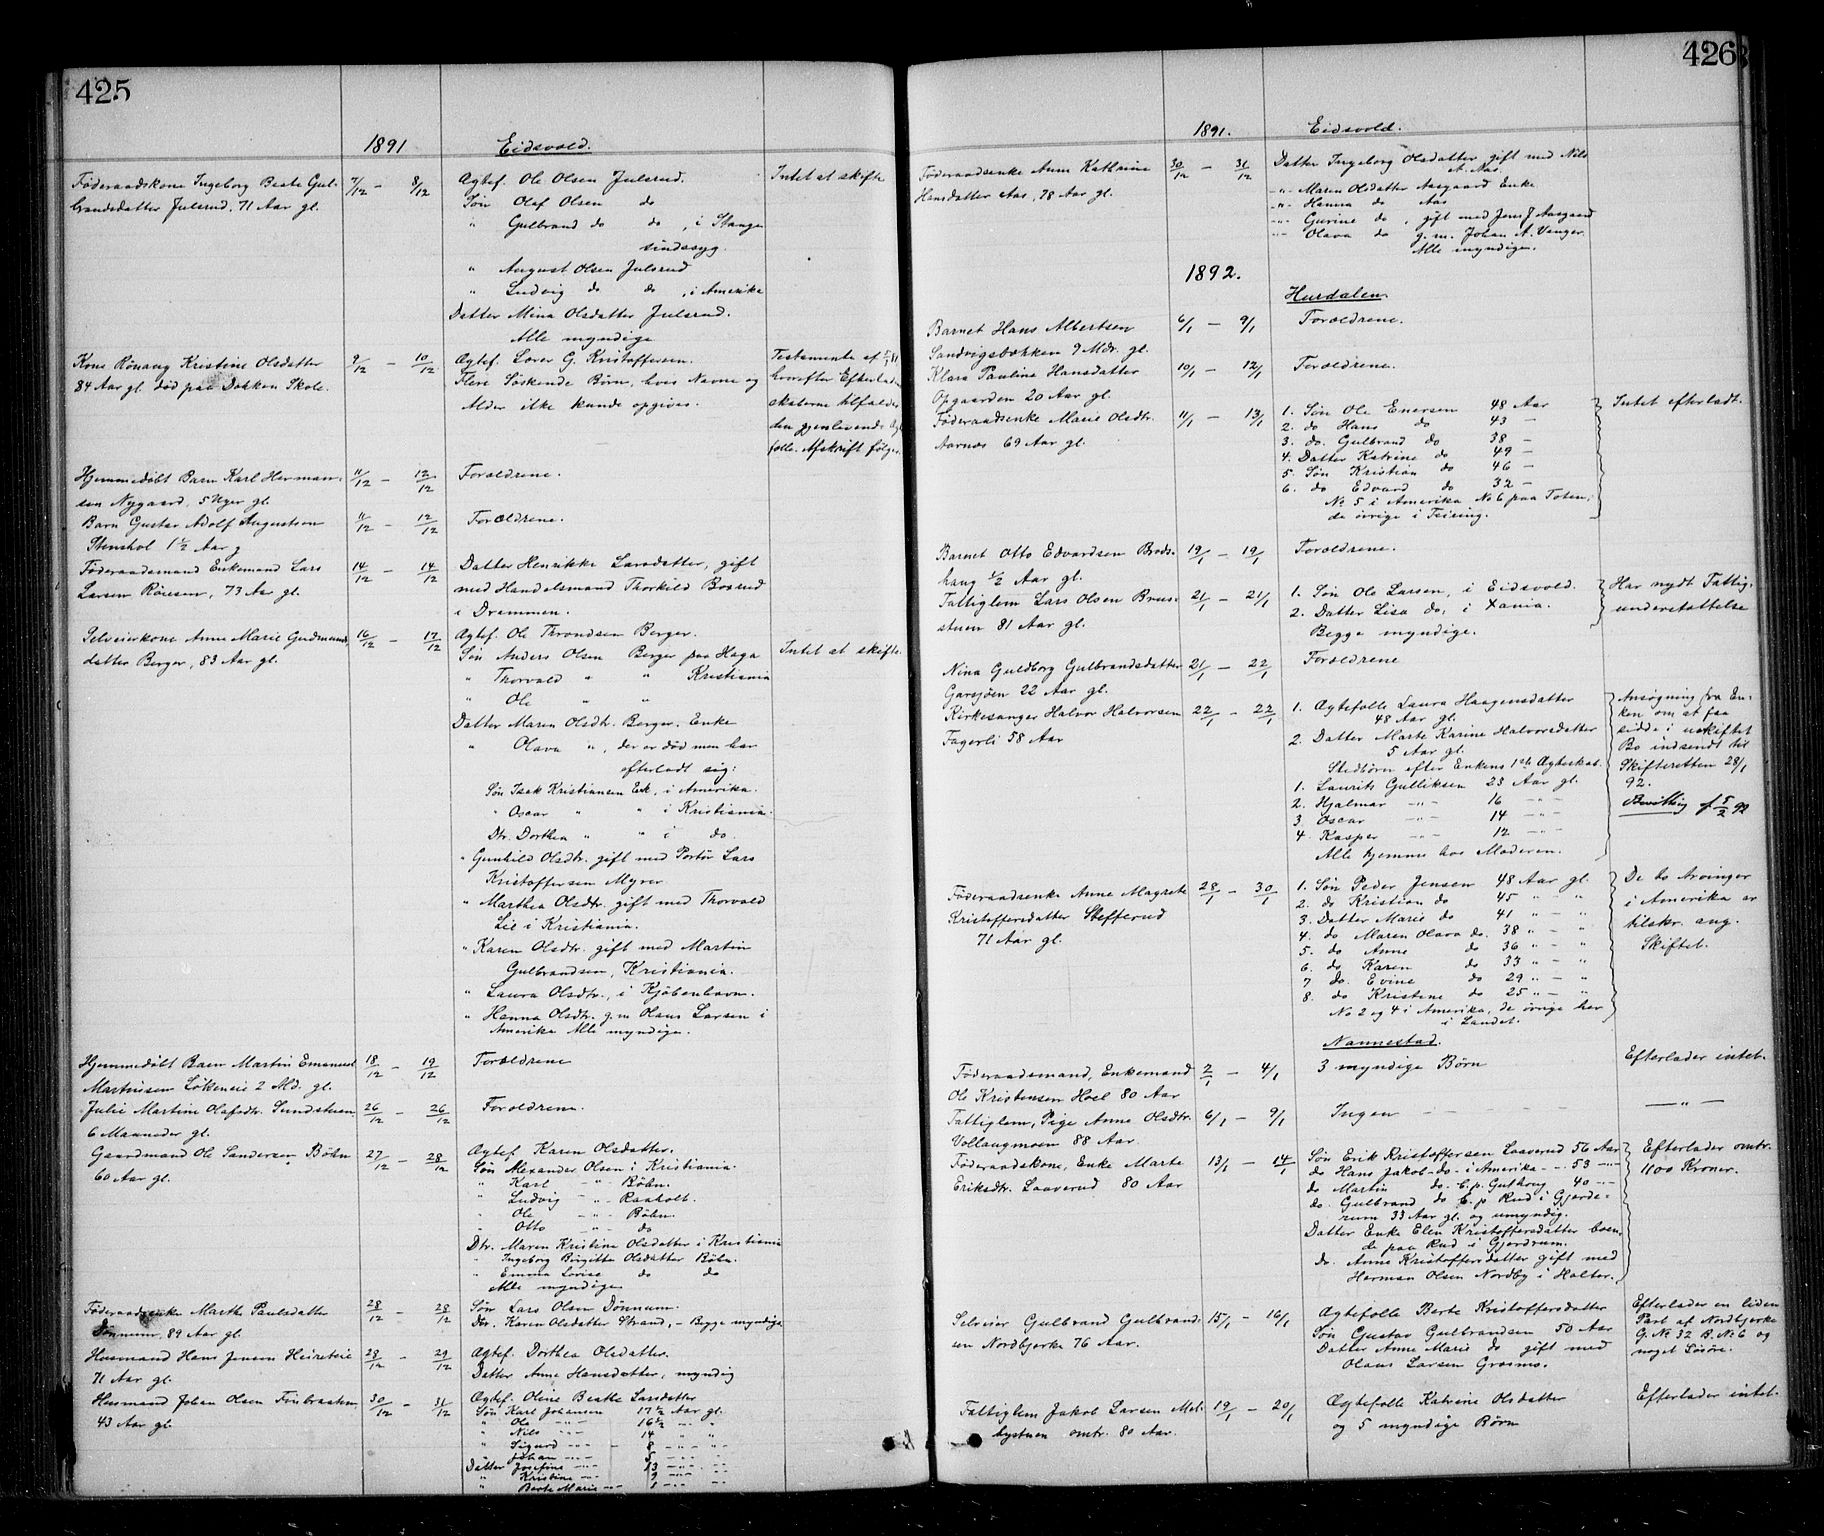 425
1891
Eidsvold.
Føderaadskone Ingeborg Beate Gul-
brandsdatter Julsrud, 71 Aar gl.
7/12 — 8/12
Agtef. Ole Olsen Julsrud.
Søn Olaf Olsen do
" Gulbrand do do, i Stange
sindssyg.
" August Olsen Julsrud
" Ludvig do do, i Amerika
Datter Mina Olsdatter Julsrud.
Alle myndige
Intet at skifte
Kone Rønaug Kristine Olsdatter
84 Aar gl. død paa Dokken Skole.
9/12 — 10/12
Agtef. Lorer G. Kristoffersen.
Flere Søskende Børn, hvis Navne og
Alder ikke kunde opgives.
Testamente af
hvorefter Efterlade
skaberne tilfalder
den gjenlevende Ægte
folle. Afskrift følger.
Hjemmedøbt Barn Karl Herman-
sen Nygaard, 5 Uger gl.
11/12 — 12/12
Forældrene.
Barn Gustav Adolf Augustsen
Stenshol 1 1/2 Aar g
11/12 — 12/12
Forældrene.
Føderaadsmand Enkemand Lars
Larsen Røisen, 73 Aar gl.
14/12 — 14/12
Datter Henrikke Larsdatter, gift
med Handelsmand Thorkild Bogrud
i Drammen.
Selveierkone Anne Marie Gudmunds
datter Berger, 83 Aar gl.
16/12 — 17/12
Agtef. Ole Throndsen Berger.
Søn Anders Olsen Berger paa Haga
" Thorvald " " Kristiania
" Ole " "
Datter Maren Olsdtr. Berger. Enke
" Olava ", der er død men har
efterladt sig:
Søn Isak Kristiansen Eek, i Amerika.
" Oscar " " i Kristiania.
Dtr. Dorthea " " i do.
" Gunhild Olsdtr. gift med Portør Lars
Kristoffersen Myrer
" Marthea Olsdtr. gift med Thorvald
Lie i Kristiania.
" Karen Olsdtr. gift med Martin
Gulbrandsen, Kristiania.
" Laura Olsdtr., i Kjøbenhavn.
" Hanna Olsdtr. g.m. Olaus Larsen i
Amerika Alle myndige.
Intet at skifte.
Hjemmedøbt Barn Martin Emanuel
Martinsen Løkeneie 2 Md. gl.
18/12 — 19/12
Forældrene
Julie Martine Olafsdtr. Sundstuen
6 Maaneder gl.
26/12 — 26/12
Forældrene.
Gaardmand Ole Sandersen Bøhn
60 Aar gl.
27/12 — 28/12
Agtef Karen Olsdatter.
Søn Alexander Olsen i Kristiania.
" Karl -"- Bøhn.
" Ludvig -"- Raaholt.
" Ole -"- Bøhn.
" Otto -"- do
Dtr. Maren Kristine Olsdatter i Kristiania
" Ingeborg Birgitte Olsdatter Bøhn.
" Emma Lovise do do
Alle myndige
Føderaadsenke Marthe Paulsdatter
Dønnum, 89 Aar gl.
28/12 — 28/12
Søn Lars Olsen Dønnum.
Dtr. Karen Olsdatter Strand, – Begge myndige
Husmand Hans Jensen Heireteie
71 Aar gl.
28/12 — 29/12
Agtef. Dorthea Olsdatter.
Datter Anne Hansdatter, myndig
Husmand Johan Olsen Finbraaten
43 Aar gl.
30/12 — 31/12
Agtef. Oline Beathe Larsdatter
Søn Karl Johansen 17 1/2 Aar gl.
" Ole -"- 16 1/2 " "
" Nils -"- 14 " "
" Sigurd -"- 8 " "
" Johan -"- 5
Datter Josefine -"- 13 -"-
" Kristine -"- 9 -"-
" Berte Marie -"- 1 -"-
426
1891.
Eidsvold.
Føderaadsenke Anne Kathrine
Hansdatter Aas, 78 Aar gl.
30/12 — 31/12
Datter Ingeborg Olsdatter gift med Nils
A. Aas.
-"- Maren Olsdatter Aasgaard Enke.
-"- Hanna do Aas
-"- Gurine do, gift med Jens J Aasgaard
-"- Olava do g.m. Johan A. Vanger
Alle myndige.
1892.
Hurdalen
Barnet Hans Albertsen
Sandvigsbækken 9 Mdr. gl.
6/1 — 9/1
Forældrene.
Klara Pauline Hansdatter
Opgaarden 20 Aar gl.
10/1 — 12/1
Forældrene.
Føderaadsenke Marie Olsdtr.
Aarnæs 69 Aar gl.
11/1 — 13/1
1. Søn Ole Enersen 48 Aar
2. do Hans do 43 —
3. do. Gulbrand do 38 —
4. Datter Katrine do 49 —
5. Søn Kristian do 46 —
6. do Edvard do 32 —
No 5 i Amerika No 6 paa Toten,
de øvrige i Feiring.
Intet efterladt.
Barnet Otto Edvardsen Brods-
haug 1/2 Aar gl.
19/1 — 19/1
Forældrene.
Fattiglem Lars Olsen Brus-
stuen 81 Aar gl.
21/1 — 21/1
1. Søn Ole Larsen, i Eidsvold.
2. Datter Lisa do, i Xania.
Begge myndige.
Har nydt Fattig-
understøttelse
Nina Guldborg Gulbrandsdatter
Garsjøen 22 Aar gl.
21/1 — 22/1
Forældrene
Kirkesanger Halvor Halvorsen
Fagerli 58 Aar
22/1 — 22/1
1. Ægtefolle Laura Haagensdatter
48 Aar gl.
2. Datter Marte Karine Halvorsdatter
5 Aar gl.
Stedbørn efter Enkens 1ste Ægteskab.
1. Laurits Gulliksen 23 Aar gl.
2. Hjalmar -"- 16 -"-
3. Oscar -"- 14 -"-
4. Kasper -"- 12 -"-
Alle hjemme hos Moderen.
Ansøgning fra En-
ken om at faa
sidde i uskiftet
Bo indsendt til
Skifteretten 28/1
92.
Bevilling f 5/2 92
Føderaadsenke Anne Magrete
Kristoffersdatter Stefferud
71 Aar gl.
28/1 — 30/1
1. Søn Peder Jensen 48 Aar gl.
2. do Kristian do 45 " — "
3. Datter Marie do 41 " — "
4. do Maren Olava do. 38 " — "
5. do Anne do 36 " — "
6. do Karen do 33 " — "
7 do. Evine do 29 " — "
8. do Kristine do 25 " — "
No 2 og 4 i Amerika, de øvrige her
i Landet.
De to Arvinger
i Amerika er
tilskr. ang.
Skiftet.
Nannestad.
Føderaadsmand, Enkemand
Ole Kristensen Hoel 80 Aar
2/1 — 4/1
3 myndige Børn
Efterlader intet.
Fattiglem, Pige Anne Olsdtr.
Vollaugmoen 88 Aar.
6/1 — 9/1
Ingen
— " —
Føderaadskone, Enke Marte
Eriksdtr. Laaverud 80 Aar
13/1 — 14/1
Søn Erik Kristoffersen Laaverud 56 Aar
do Hans Jakob -do- i Amerika - - 53 -"-
do Martin do. b. p. Gulhaug 40 -"-
do. Gulbrand do b. p Rud i Gjerde-
rum 33 Aar gl. og umyndig.
Datter Enke Elen Kristoffersdatter boen-
de paa Rud i Gjerdrum.
do. Anne Kristoffersdatter gift med
Herman Olsen Nordby i Holter.
Efterlader omtr.
1100 Kroner.
Selveier Gulbrand Gulbrand-
sen Nordbjerke 76 Aar.
15/1 — 16/1
Ægtefolle Berte Kristoffersdatter
Søn Gustav Gulbrandsen 50 Aar
Datter Anne Marie do gift med
Olaus Larsen Grosmo.
Efterlader en liden
Part af Nordbjerke
G. No 32 B. No 6 og
noget Løsøre.
Fattiglem Jakob Larsen Mel-
bystuen omtr. 80 Aar.
19/1 — 20/1
Ægtefolle Katrine Olsdatter
og 5 myndige Børn
Efterlader intet.